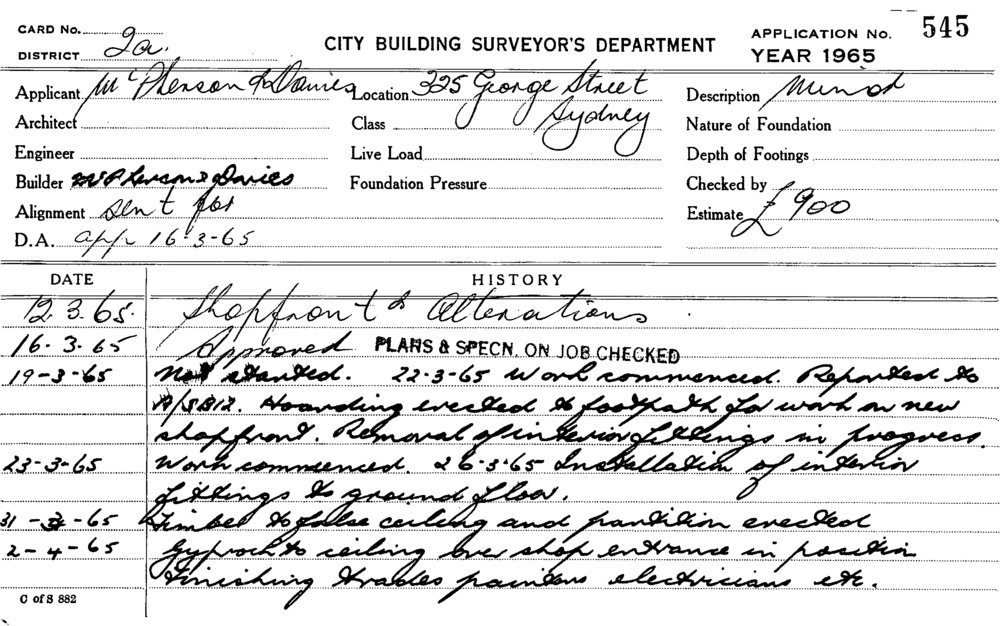 CARD No. 545
DISTRICT 2a. CITY BUILDING SURVEYOR'S DEPARTMENT APPLICATION No.
YEAR 1965
Applicant McPherson & Davies Location 325 George Street Description Minor
Architect Class Sydney Nature of Foundation
Engineer Live Load Depth of Footings
Builder McPherson & Davies Foundation Pressure Checked by
Alignment Sent for Estimate £900
D.A. app 16-3-65
DATE HISTORY
12.3.65. Shopfront & Alterations.
16.3.65 Approved PLANS & SPECN. ON JOB CHECKED
19-3-65 Not started. 22-3-65 Work commenced. Reported to
Hoarding erected to footpath for work on new
shopfront. Removal of interior fittings in progress.
23-3-65 Work commenced. 26-3-65 Installation of interior
fittings to ground floor.
31-3-65 Timber to false ceiling and partition erected
2-4-65 Gyprock to ceiling over shop entrance in position
Finishing trades painters electricians etc.
C of S 882